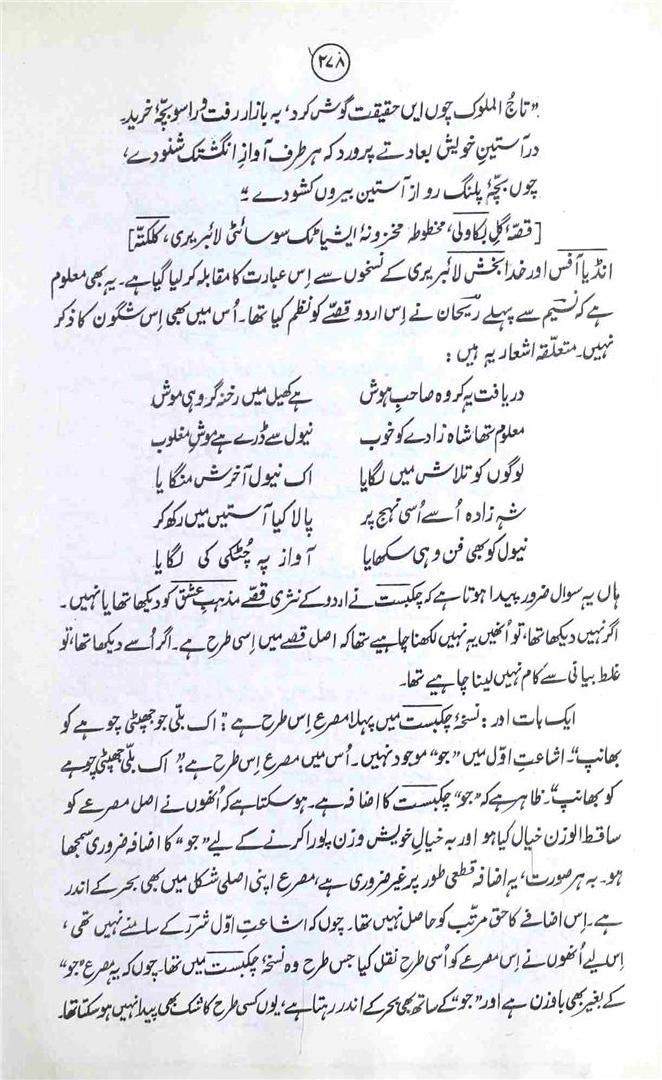 ۲۷۸
”تاجُ الملوک چوں ایں حقیقت گوش کرد، بہ بازار رفت و راسو بچّۂ خرید۔
در آستینِ خویش بعادتے پرورد کہ ہر طرف آوازِ انگشتک شنودے،
چوں بچّۂ پلنگ رو از آستین بیروں کشودے“
[قصّۂ گلِ بکاولی، مخطوطہ مخزونۂ ایشیاٹک سوسائٹی لائبریری، کلکتہ]
انڈیا آفس اور خدا بخش لائبریری کے نسخوں سے اِس عبارت کا مقابلہ کر لیا گیا ہے۔ یہ بھی معلوم
ہے کہ نسیم سے پہلے ریحان نے اِس اردو قصّے کو نظم کیا تھا۔ اُس میں بھی اِس شگون کا ذکر
نہیں۔ متعلّقہ اشعار یہ ہیں:
دریافت یہ کر وہ صاحبِ ہوش ہے کھیل میں رخنہ گر وہی موش
معلوم تھا شاہ زادے کو خوب نیول سے ڈرے ہے موشِ مغلوب
لوگوں کو تلاش میں لگایا اک نیول آخرش منگایا
شہ زادہ اُسے اُسی نہج پر پالا کیا آستیں میں رکھ کر
نیول کو بھی فن وہی سکھایا آواز پہ چُٹکی کی لگایا
ہاں یہ سوال ضرور پیدا ہوتا ہے کہ چکبست نے اردو کے نثری قصّے مذہبِ عشق کو دیکھا تھا یا نہیں۔
اگر نہیں دیکھا تھا، تو اُنھیں یہ نہیں لکھنا چاہیے تھا کہ اصل قصے میں اِسی طرح ہے۔ اگر اُسے دیکھا تھا، تو
غلط بیانی سے کام نہیں لینا چاہیے تھا۔
ایک بات اور: نسخۂ چکبست میں پہلا مصرع اِس طرح ہے: ”اک بلّی جو جھپٹی چوہے کو
بھانپ“۔ اشاعتِ اوّل میں ”جو“ موجود نہیں۔ اُس میں مصرع اِس طرح ہے: ”اک بلّی جھپٹی چوہے
کو بھانپ“۔ ظاہر ہے کہ ”جو“ چکبست کا اضافہ ہے۔ ہو سکتا ہے کہ اُنھوں نے اصل مصرعے کو
ساقط الوزن خیال کیا ہو اور بہ خیالِ خویش وزن پورا کرنے کے لیے ”جو“ کا اضافہ ضروری سمجھا
ہو۔ بہ ہر صورت، یہ اضافہ قطعی طور پر غیر ضروری ہے، مصرع اپنی اصلی شکل میں بھی بحر کے اندر
ہے۔ اِس اضافے کا حق مرتّب کو حاصل نہیں تھا۔ چوں کہ اشاعتِ اوّل شرر کے سامنے نہیں تھی،
اِس لیے اُنھوں نے اِس مصرعے کو اُسی طرح نقل کیا جس طرح وہ نسخۂ چکبست میں تھا۔ چوں کہ یہ مصرع ”جو“
کے بغیر بھی با وزن ہے اور ”جو“ کے ساتھ بھی بحر کے اندر رہتا ہے، یوں کسی طرح کا شک بھی پیدا نہیں ہو سکتا تھا۔